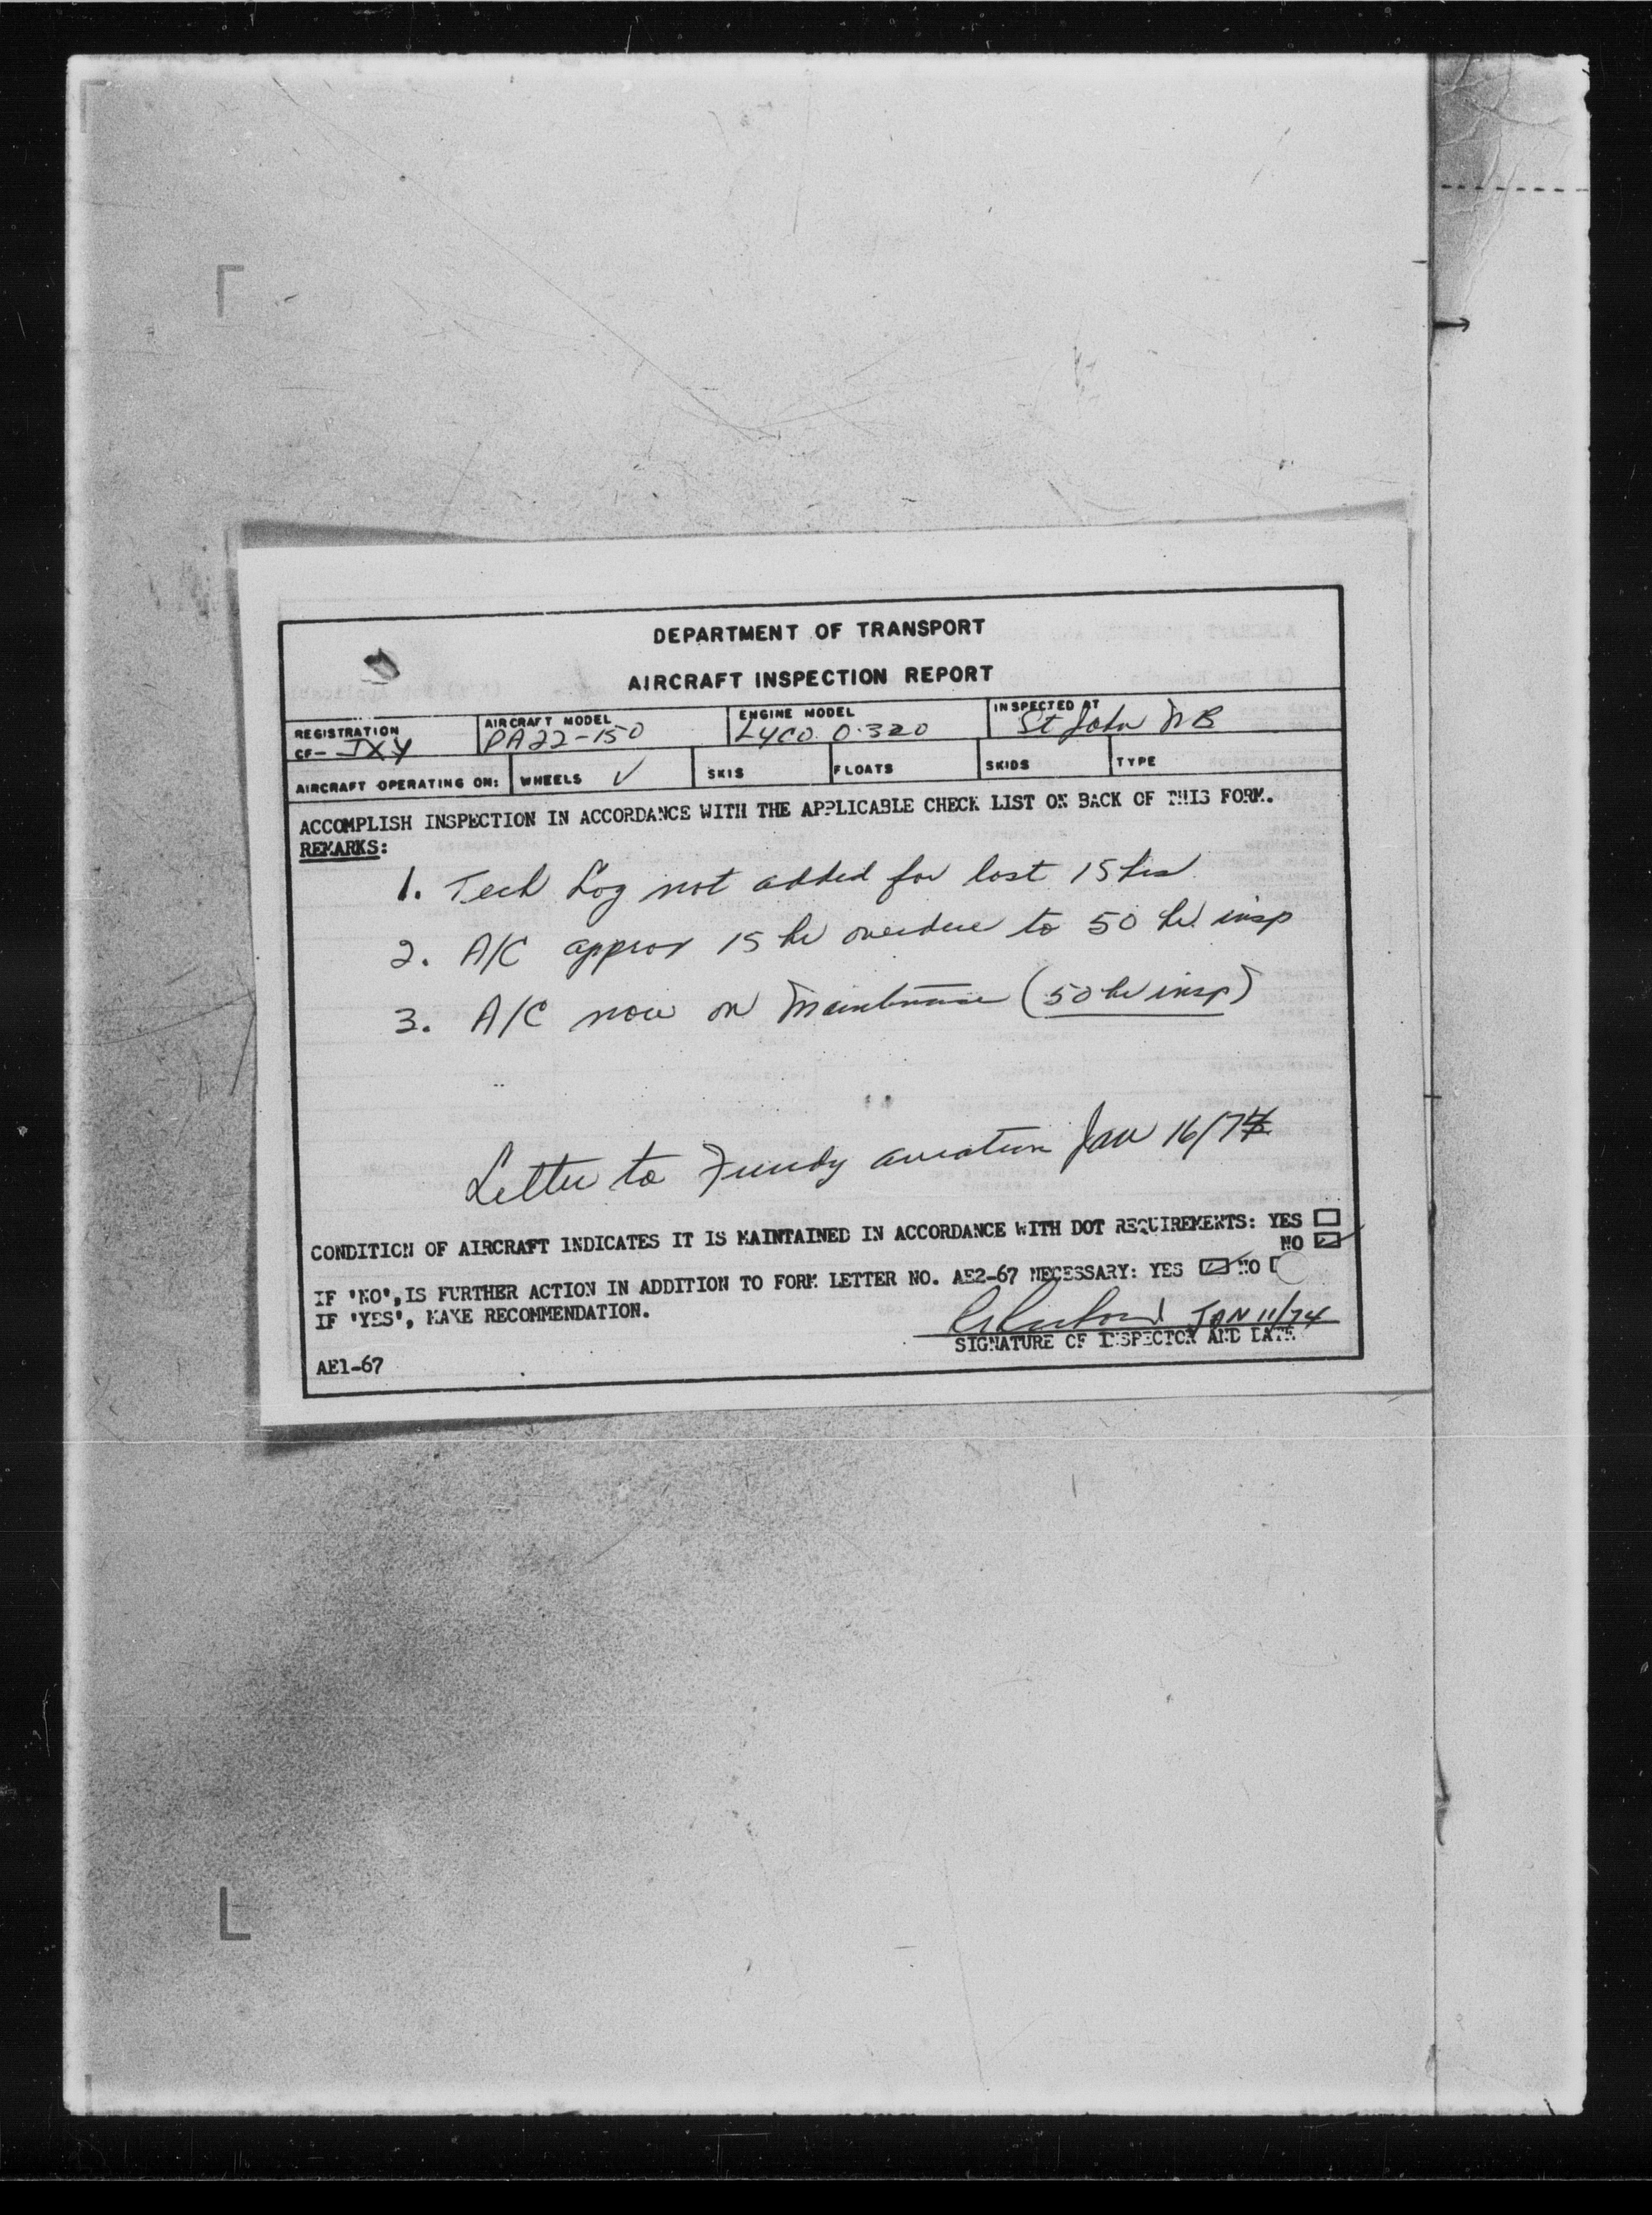 DEPARTMENT OF TRANSPORT
AIRCRAFT INSPECTION REPORT
REGISTRATION
CF- JXY
AIRCRAFT MODEL
PA22-150
ENGINE MODEL
LYCO O-320
INSPECTED AT
St John N B
AIRCRAFT OPERATING ON: WHEELS ✓ SKIS FLOATS SKIDS TYPE
ACCOMPLISH INSPECTION IN ACCORDANCE WITH THE APPLICABLE CHECK LIST ON BACK OF THIS FORM.
REMARKS:
1. Tech Log not added for last 15 hrs
2. A/C approx 15 hr overdue to 50 hr insp
3. A/C now on Maintenance (50 hr insp)
Letter to Fundy aviation Jan 16/74
CONDITION OF AIRCRAFT INDICATES IT IS MAINTAINED IN ACCORDANCE WITH DOT REQUIREMENTS: YES
NO
IF "NO", IS FURTHER ACTION IN ADDITION TO FORM LETTER NO. AE2-67 NECESSARY: YES NO
IF "YES", MAKE RECOMMENDATION.
JAN 11/74
SIGNATURE OF INSPECTOR AND DATE
AE1-67